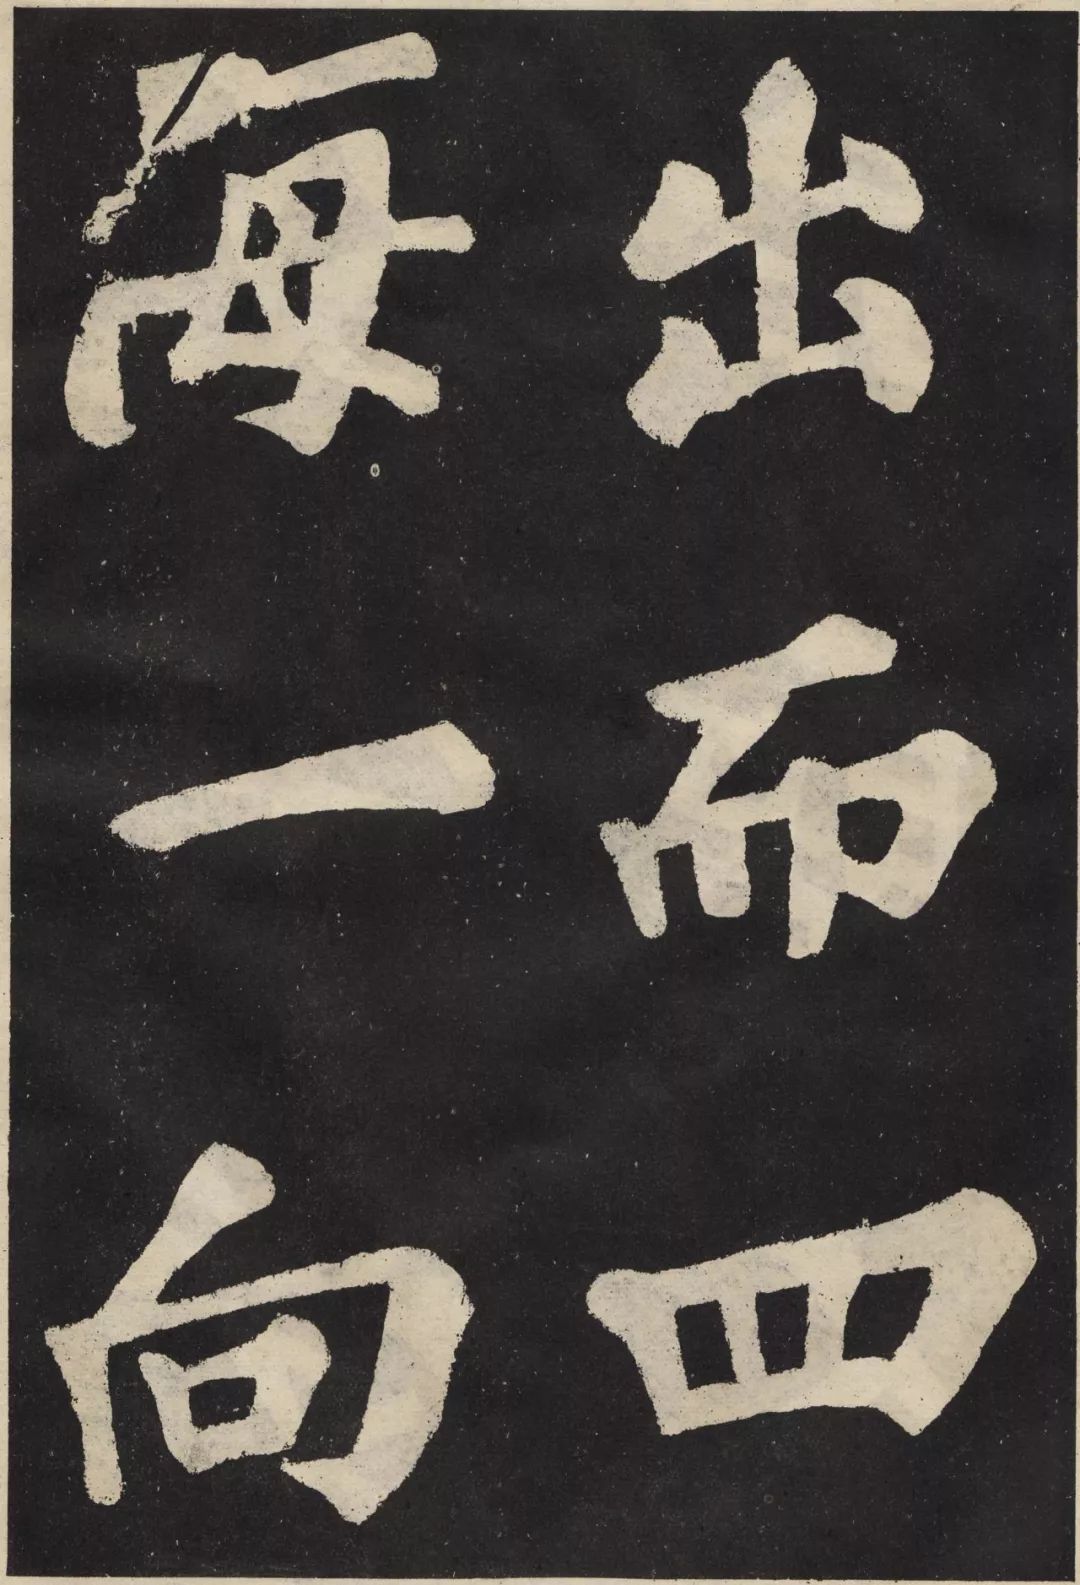 出而四
每一向